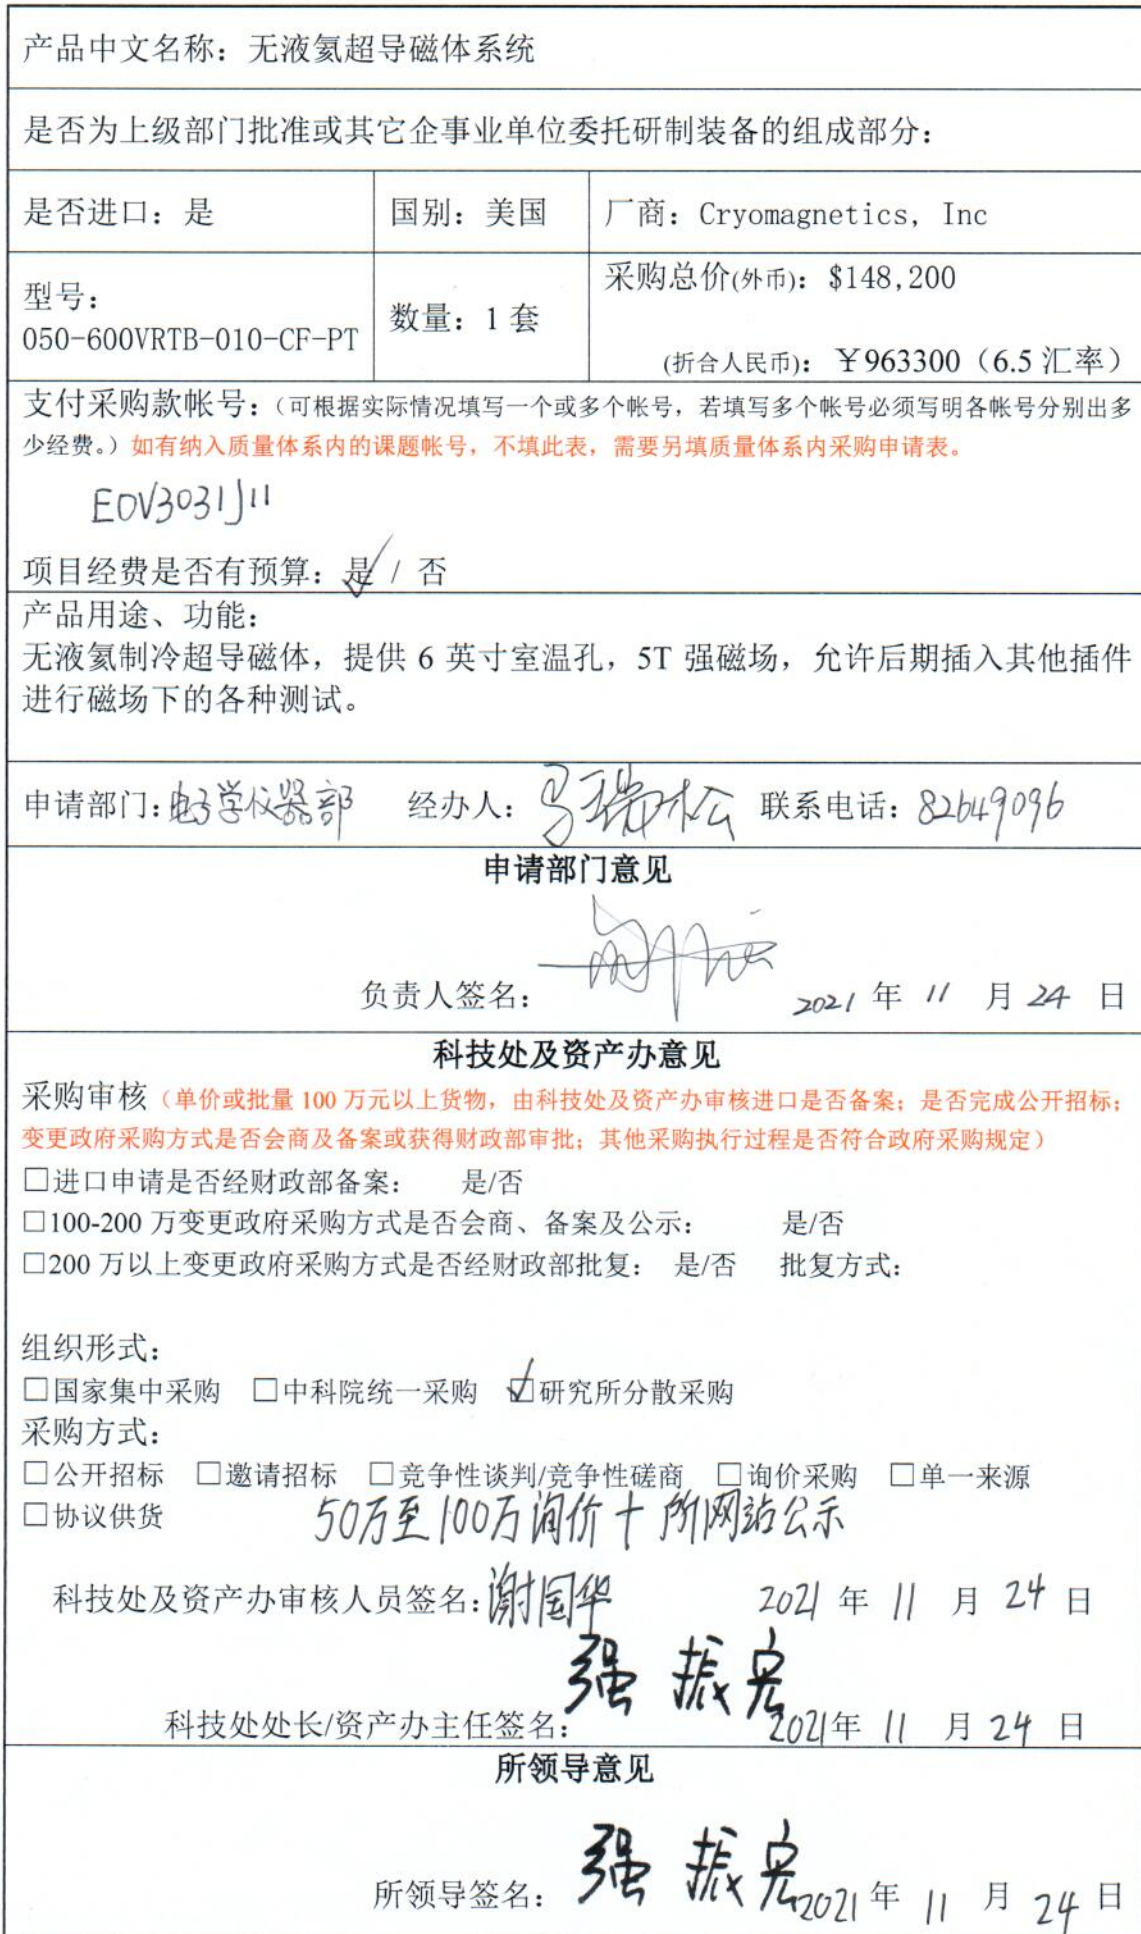 产品中文名称：无液氦超导磁体系统
是否为上级部门批准或其它企事业单位委托研制装备的组成部分：
是否进口：是 国别：美国 厂商：Cryomagnetics, Inc
型号：
050-600VRTB-010-CF-PT
数量：1 套
采购总价(外币)：$148,200
(折合人民币)：￥963300（6.5 汇率）
支付采购款帐号：（可根据实际情况填写一个或多个帐号，若填写多个帐号必须写明各帐号分别出多
少经费。）如有纳入质量体系内的课题帐号，不填此表，需要另填质量体系内采购申请表。
E0V3031J11
项目经费是否有预算：是 / 否
产品用途、功能：
无液氦制冷超导磁体，提供 6 英寸室温孔，5T 强磁场，允许后期插入其他插件
进行磁场下的各种测试。
申请部门：电子学仪器部 经办人：马瑞松 联系电话：82649096
申请部门意见
负责人签名： 2021 年 11 月 24 日
科技处及资产办意见
采购审核（单价或批量 100 万元以上货物，由科技处及资产办审核进口是否备案；是否完成公开招标；
变更政府采购方式是否会商及备案或获得财政部审批；其他采购执行过程是否符合政府采购规定）
□进口申请是否经财政部备案： 是/否
□100-200 万变更政府采购方式是否会商、备案及公示： 是/否
□200 万以上变更政府采购方式是否经财政部批复： 是/否 批复方式：
组织形式：
□国家集中采购 □中科院统一采购 ☑研究所分散采购
采购方式：
□公开招标 □邀请招标 □竞争性谈判/竞争性磋商 □询价采购 □单一来源
□协议供货 50万至100万询价＋所网站公示
科技处及资产办审核人员签名：谢国华 2021 年 11 月 24 日
科技处处长/资产办主任签名：强振宏 2021年 11 月 24 日
所领导意见
所领导签名：强振宏 2021 年 11 月 24 日